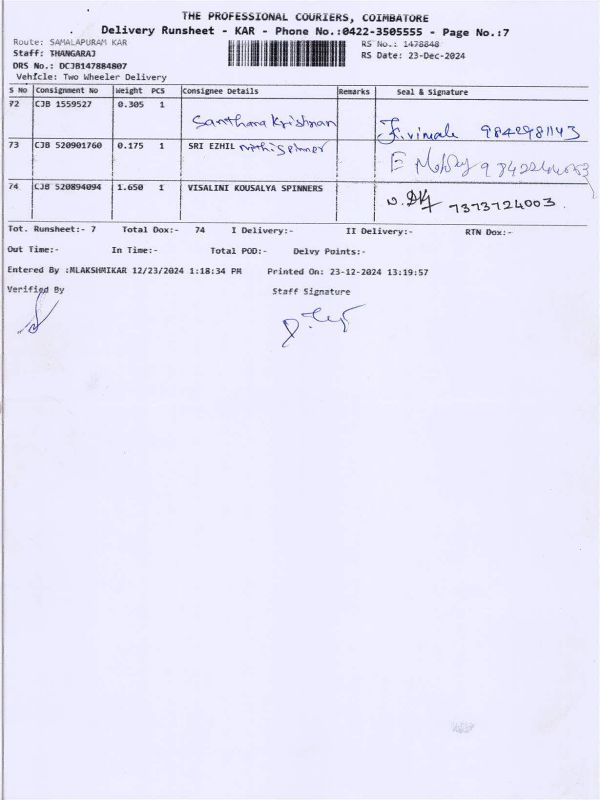 THE PROFESSIONAL COURIERS, COIMBATORE
Delivery Runsheet - KAR - Phone No.:0422-3505555 - Page No.:7
Route: SAMALAPURAM KAR
RS No.: 1478848
Staff: THANGARAJ
RS Date: 23-Dec-2024
DRS No.: DCJB147884807
Vehicle: Two Wheeler Delivery
S No Consignment No Weight PCS Consignee Details Remarks Seal & Signature
72 CJB 1559527 0.305 1
Santhana Krishnan
J.vimala 9842981143
73 CJB 520901760 0.175 1 SRI EZHIL nithi spinner
E
74 CJB 520894094 1.650 1 VISALINI KOUSALYA SPINNERS
7373724003
Tot. Runsheet:- 7 Total Dox:- 74 I Delivery:- II Delivery:- RTN Dox:-
Out Time:- In Time:- Total POD:- Delvy Points:-
Entered By :MLAKSHMIKAR 12/23/2024 1:18:34 PM Printed On: 23-12-2024 13:19:57
Verified By Staff Signature